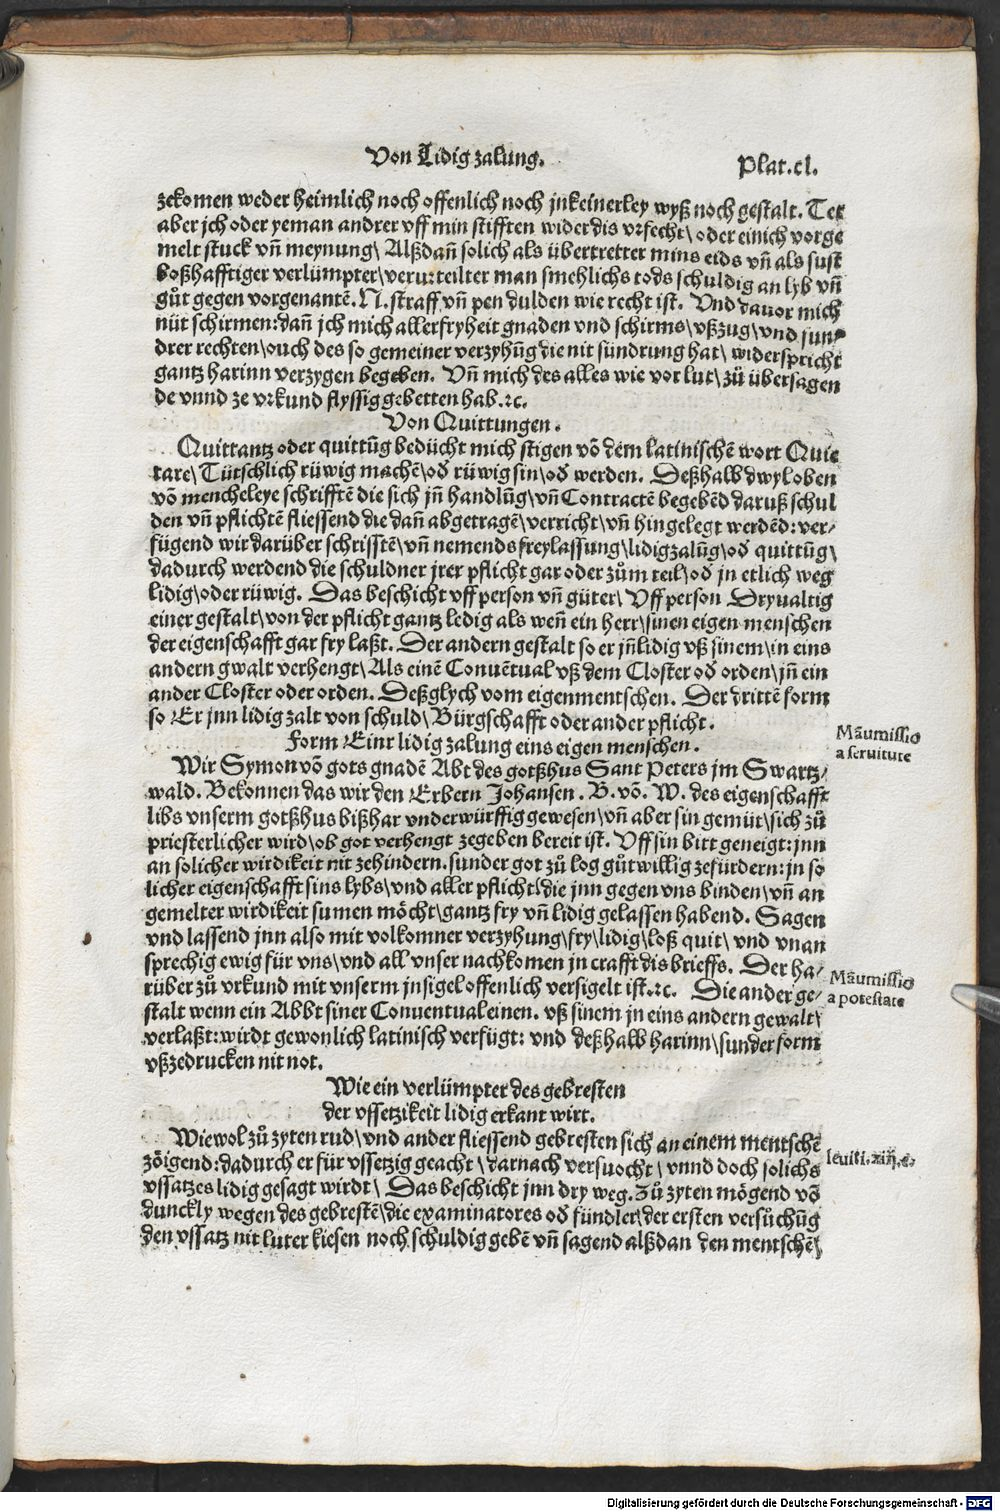 Von Lidig zalung.
Plat. cl.
zekomen weder heimlich noch offenlich noch jnkeinerley wyß noch gestalt. Tet
aber jch oder yeman andrer vff min stifften wider dis vrfecht\ oder einich vorge
melt stuck vn̄ meynung\ Alßdan̄ solich als übertretter mins eids vn̄ als sust
boßhafftiger verlümpter\ veru:teilter man smehlichs tods schuldig an lyb vn̄
gůt gegen vorgenantē. N. straff vn̄ pen dulden wie recht ist. Vnd dauor mich
nüt schirmen: dan̄ jch mich aller fryheit gnaden vnd schirms\ vßzug\ vnd jun
drer rechten\ ouch des so gemeiner verzyhūg die nit sündrung hat\ widerspricht
gantz harinn verzygen begeben. Vn̄ mich des alles wie vor lut\ zů übersagen
de vnnd ze vrkund flyssig gebetten hab. ⁊c.
Von Quittungen.
Quittantz oder quittūg bedücht mich stigen vō dem latinischē wort Quie
tare\ Tütschlich rüwig machē\ od̄ rüwig sin\ od̄ werden. Deßhalb dwyl oben
vō mencheleye schrifftē die sich jn̄ handlūg\ vn̄ Contractē begebēd daruß schul
den vn̄ pflichtē fliessend die dan̄ abgetragē\ verricht\ vn̄ hingelegt werdēd: ver⸗
fügend wir darüber schrifftē\ vn̄ nemends freylassung\ lidigzalūg\ od̄ quittūg\
dadurch werdend die schuldner jrer pflicht gar oder zům teil\ od̄ jn etlich weg
lidig\ oder rüwig. Das beschicht vff person vn̄ güter\ Vff person Dryualtig
einer gestalt\ von der pflicht gantz ledig als wen̄ ein herr\ sinen eigen menschen
der eigenschafft gar fry laßt. Der andern gestalt so er jn̄ lidig vß sinem\ in eins
andern gwalt verhengt\ Als einē Conuētual vß dem Closter od̄ orden\ jn̄ ein
ander Closter oder orden. Deßglych vom eigenmentschen. Der drittē form
so Er jnn lidig zalt von schuld\ Bürgschafft oder ander pflicht.
Form Einr lidig zalung eins eigen menschen.
Māumissio
a seruitute
Wir Symon vō gots gnadē Abt des gotßhus Sant Peters jm Swartz⸗
wald. Bekonnen das wir den Erbern Johansen. B. vō. W. des eigenschafft
libs vnserm gotßhus bißhar vnderwürffig gewesen\ vn̄ aber sin gemüt\ sich zů
priesterlicher wird\ ob got verhengt zegeben bereit ist. Vff sin bitt geneigt: jnn
an solicher wirdikeit nit zehindern. sunder got zů log gůtwillig zefürdern: jn so
licher eigenschafft sins lybs\ vnd aller pflicht\ die jnn gegen vns binden\ vn̄ an
gemelter wirdikeit sumen möcht\ gantz fry vn̄ lidig gelassen habend. Sagen
vnd lassend jnn also mit volkomner verzyhung\ fry\ lidig\ loß quit\ vnd vnan
sprechig ewig für vns\ vnd all vnser nachkomen jn crafft dis brieffs. Der ha⸗
rüber zů vrkund mit vnserm jnsigel offenlich versigelt ist. ⁊c. Die ander ge⸗
Māumissio
a potestate
stalt wenn ein Abbt siner Conuentual einen. vß sinem jn eins andern gewalt\
verlaßt: wirdt gewonlich latinisch verfügt: vnd deßhalb harinn\ sunder form
vßzedrucken nit not.
Wie ein verlümpter des gebresten
der vssetzikeit lidig erkant wirt.
Wiewol zů zyten rud\ vnd ander fliessend gebresten sich an einem mentschē
zöigend: dadurch er für vssetzig geacht\ darnach versuocht\ vnnd doch solichs
leuiti. xiij. c.
vssatzes lidig gesagt wirdt\ Das beschicht jnn dry weg. Zů zyten mögend vō
dunckly wegen des gebrestē\ die examinatores od̄ fündler\ der ersten versůchūg
den vssatz nit luter kiesen noch schuldig gebē vn̄ sagend alßdan den mentschē\
Digitalisierung gefördert durch die Deutsche Forschungsgemeinschaft - DFG